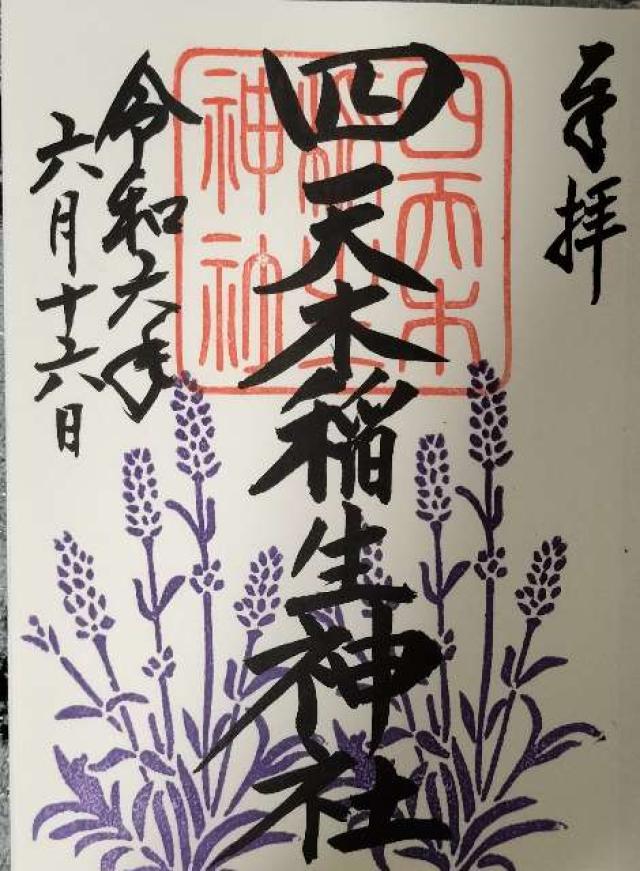 奉拝
四天木稲生神社
四天木
稲生
神社
令和六年
六月十六日